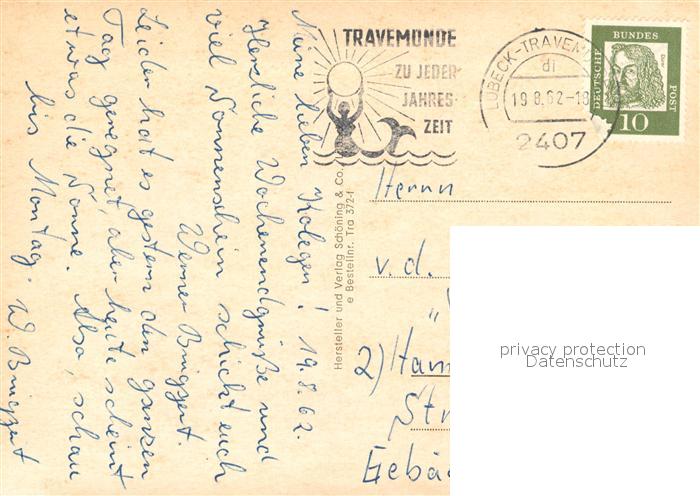 Meine lieben Kolegen! 19.8.62.
Herzliche Wochenendgrüße und
viel Sonnenschein schickt euch
Werner Bringzert.
Leider hat es gestern den ganzen
Tag geregnet, aber heute scheint
etwas die Sonne. Also, schau
bis Montag. W. Bringzert
TRAVEMÜNDE
ZU JEDER
JAHRES-
ZEIT
LÜBECK-TRAVEM
di
19.8.62-18
2407
DEUTSCHE BUNDES POST
10
Hersteller und Verlag Schöning & Co.
e Bestellnr. Tra 372-f
Herrn
v.d.
2) Ham
Str
Gebä
privacy protection
Datenschutz